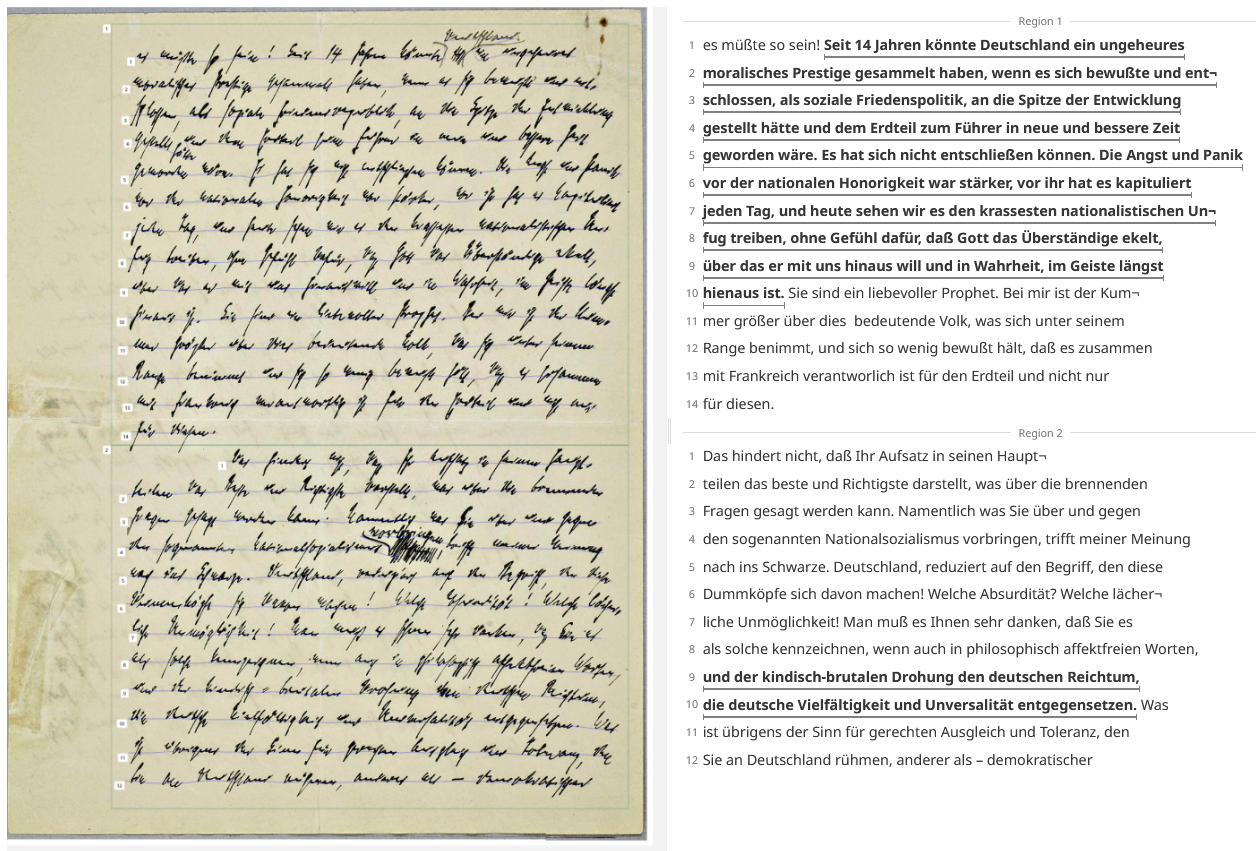 Region 1
1 es müßte so sein! Seit 14 Jahren könnte Deutschland ein ungeheures
2 moralisches Prestige gesammelt haben, wenn es sich bewußte und ent¬
3 schlossen, als soziale Friedenspolitik, an die Spitze der Entwicklung
4 gestellt hätte und dem Erdteil zum Führer in neue und bessere Zeit
5 geworden wäre. Es hat sich nicht entschließen können. Die Angst und Panik
6 vor der nationalen Honorigkeit war stärker, vor ihr hat es kapituliert
7 jeden Tag, und heute sehen wir es den krassesten nationalistischen Un¬
8 fug treiben, ohne Gefühl dafür, daß Gott das Überständige ekelt,
9 über das er mit uns hinaus will und in Wahrheit, im Geiste längst
10 hienaus ist. Sie sind ein liebevoller Prophet. Bei mir ist der Kum¬
11 mer größer über dies  bedeutende Volk, was sich unter seinem
12 Range benimmt, und sich so wenig bewußt hält, daß es zusammen
13 mit Frankreich verantworlich ist für den Erdteil und nicht nur
14 für diesen.
Region 2
1 Das hindert nicht, daß Ihr Aufsatz in seinen Haupt¬
2 teilen das beste und Richtigste darstellt, was über die brennenden
3 Fragen gesagt werden kann. Namentlich was Sie über und gegen
4 den sogenannten Nationalsozialismus vorbringen, trifft meiner Meinung
5 nach ins Schwarze. Deutschland, reduziert auf den Begriff, den diese
6 Dummköpfe sich davon machen! Welche Absurdität? Welche lächer¬
7 liche Unmöglichkeit! Man muß es Ihnen sehr danken, daß Sie es
8 als solche kennzeichnen, wenn auch in philosophisch affektfreien Worten,
9 und der kindisch-brutalen Drohung den deutschen Reichtum,
10 die deutsche Vielfältigkeit und Unversalität entgegensetzen. Was
11 ist übrigens der Sinn für gerechten Ausgleich und Toleranz, den
12 Sie an Deutschland rühmen, anderer als – demokratischer